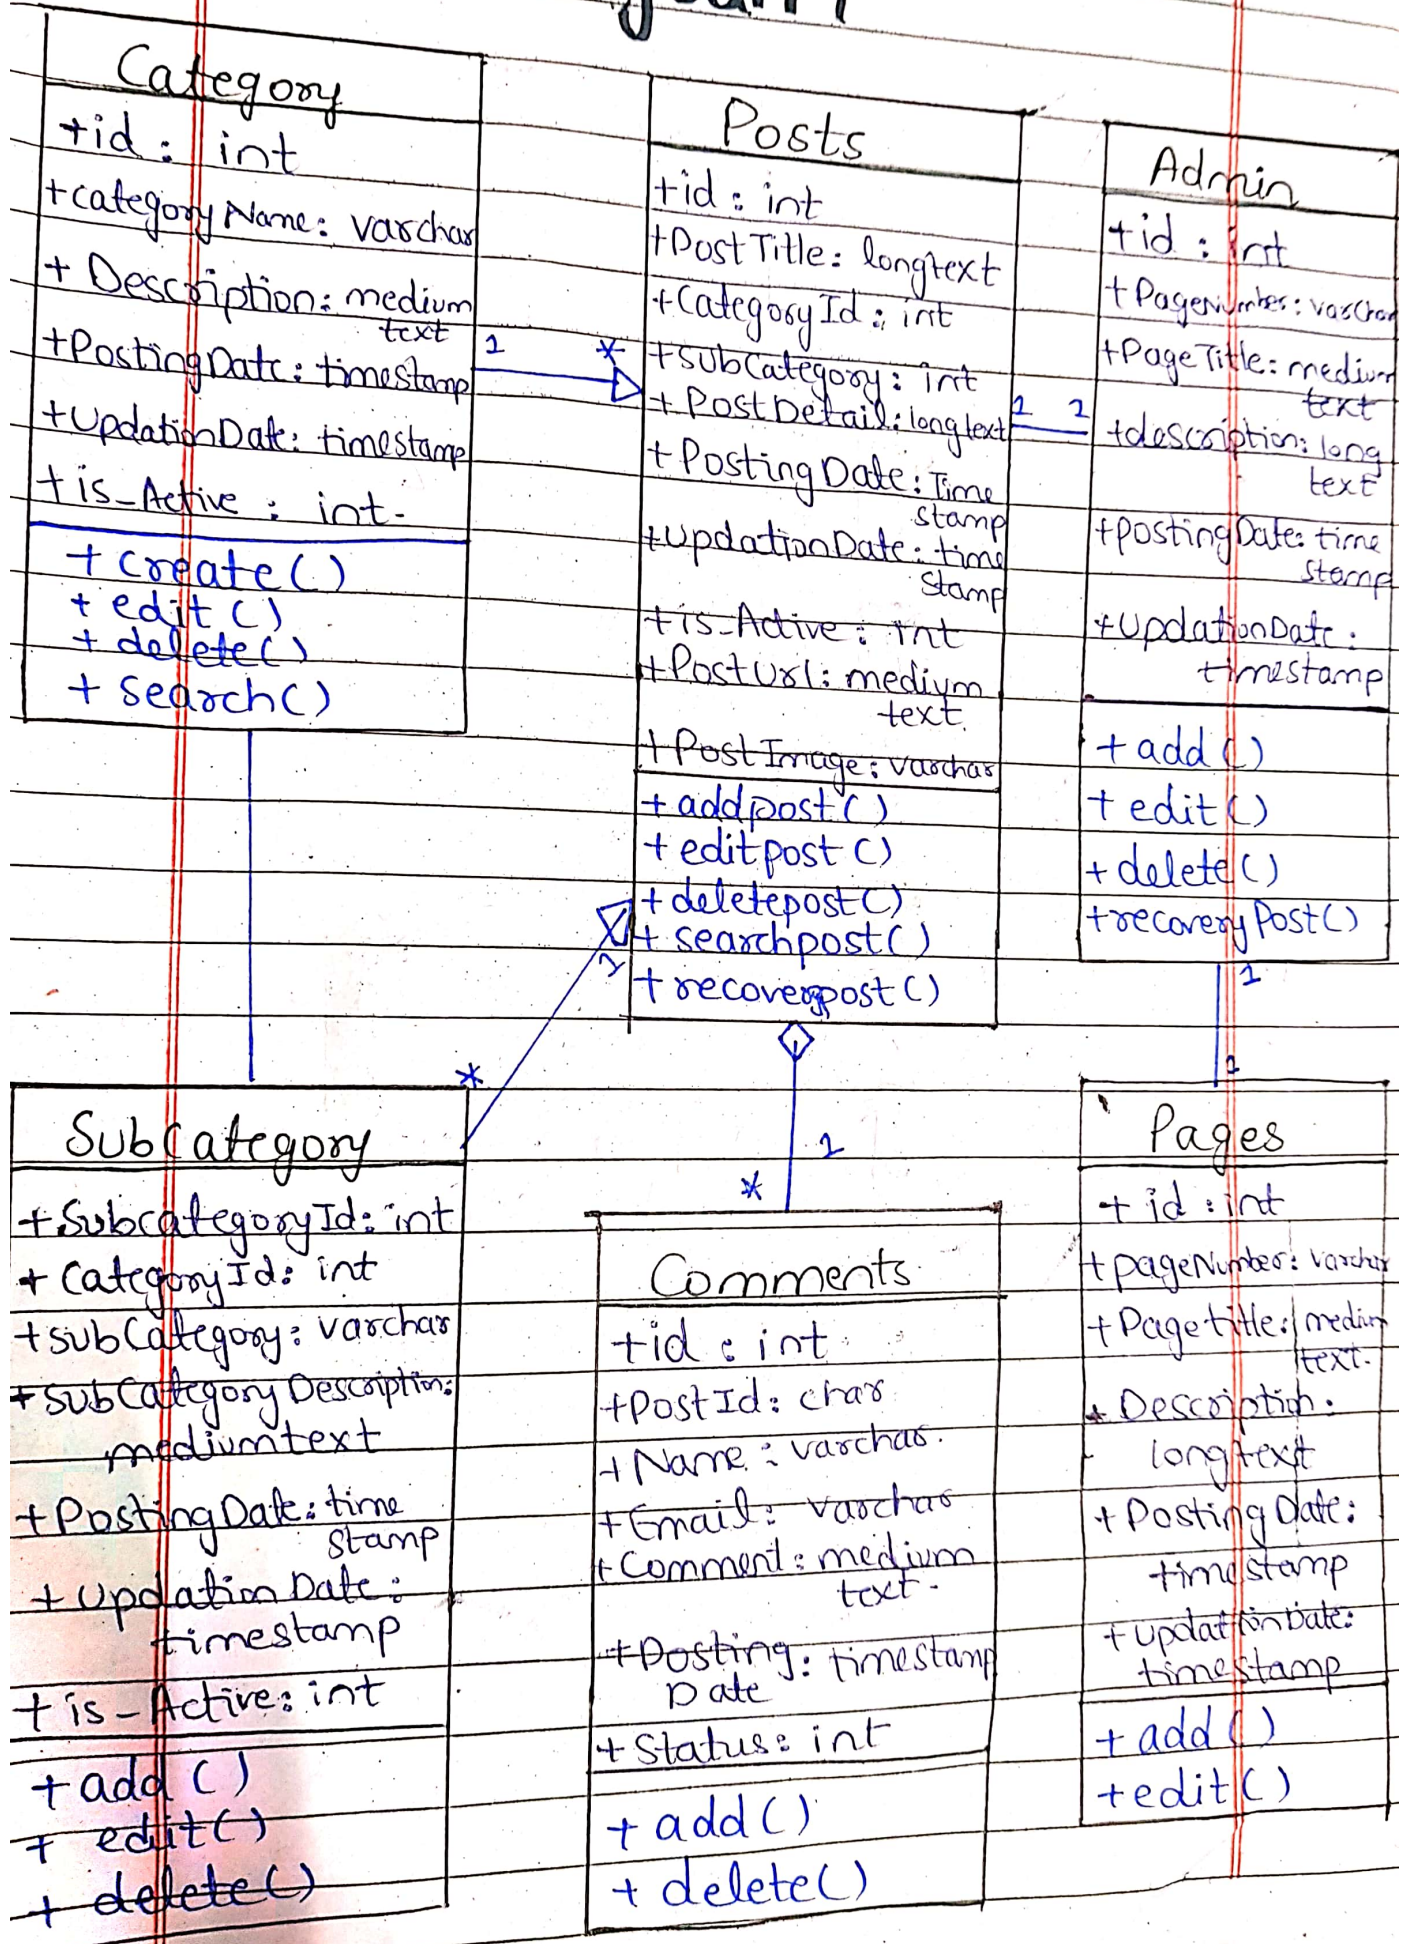 Category
+id : int
+categoryName: varchar
+ Description: medium
text
+PostingDate: timestamp
+UpdationDate: timestamp
+is_Active : int-
+ create()
+ edit ()
+ delete()
+ search()
1
*
Posts
+id : int
+PostTitle: longtext
+CategoryId : int
+subCategory: int
+ PostDetail: longtext
+ PostingDate: Time
stamp
+updationDate: time
stamp
+is_Active : int
+PostUrl: medium
text.
+PostImage: varchar
+ addpost()
+ editpost()
+ deletepost()
+ searchpost()
+ recoverypost()
1
1
Admin
+id : int
+ PageNumber: varchar
+PageTitle: medium
text
+description: long
text
+postingDate: time
stamp
+UpdationDate:
timestamp
+ add()
+ edit()
+ delete()
+recoveryPost()
1
1
1
*
1
*
SubCategory
+SubcategoryId: int
+ CategoryId: int
+subCategory: varchar
+subCategoryDescription:
mediumtext
+PostingDate: time
stamp
+ Updation Date:
timestamp
+ is_Active: int
+ add ()
+ edit()
+ delete()
Comments
+id : int
+PostId: char
+Name : varchar.
+Email: varchar
+Comment: medium
text.
+Posting: timestamp
Date
+ Status: int
+ add()
+ delete()
Pages
+ id : int
+pageNumber: varchar
+Pagetitle: medium
text.
+ Description:
longtext
+ Posting Date:
timestamp
+ updationDate:
timestamp
+ add()
+edit()